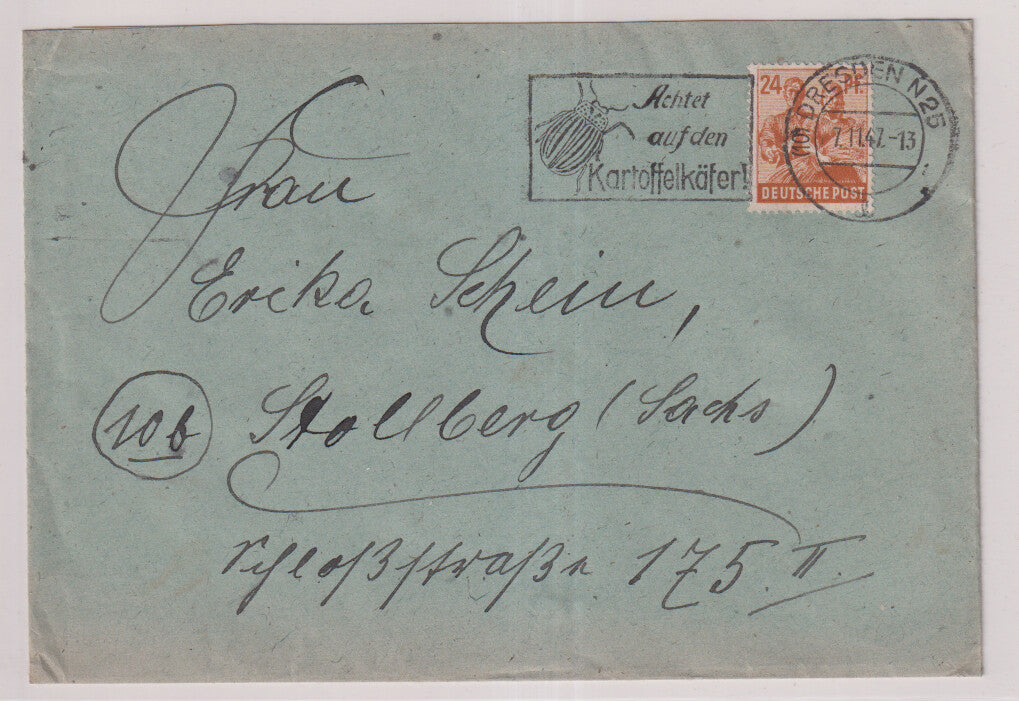 Achtet
auf den
Kartoffelkäfer!
24 Pf.
DEUTSCHE POST
(10) DRESDEN N25
7.11.47.-13
Frau
Erika Schein,
10b Stollberg (Sachs)
Schloßstraße 175 II